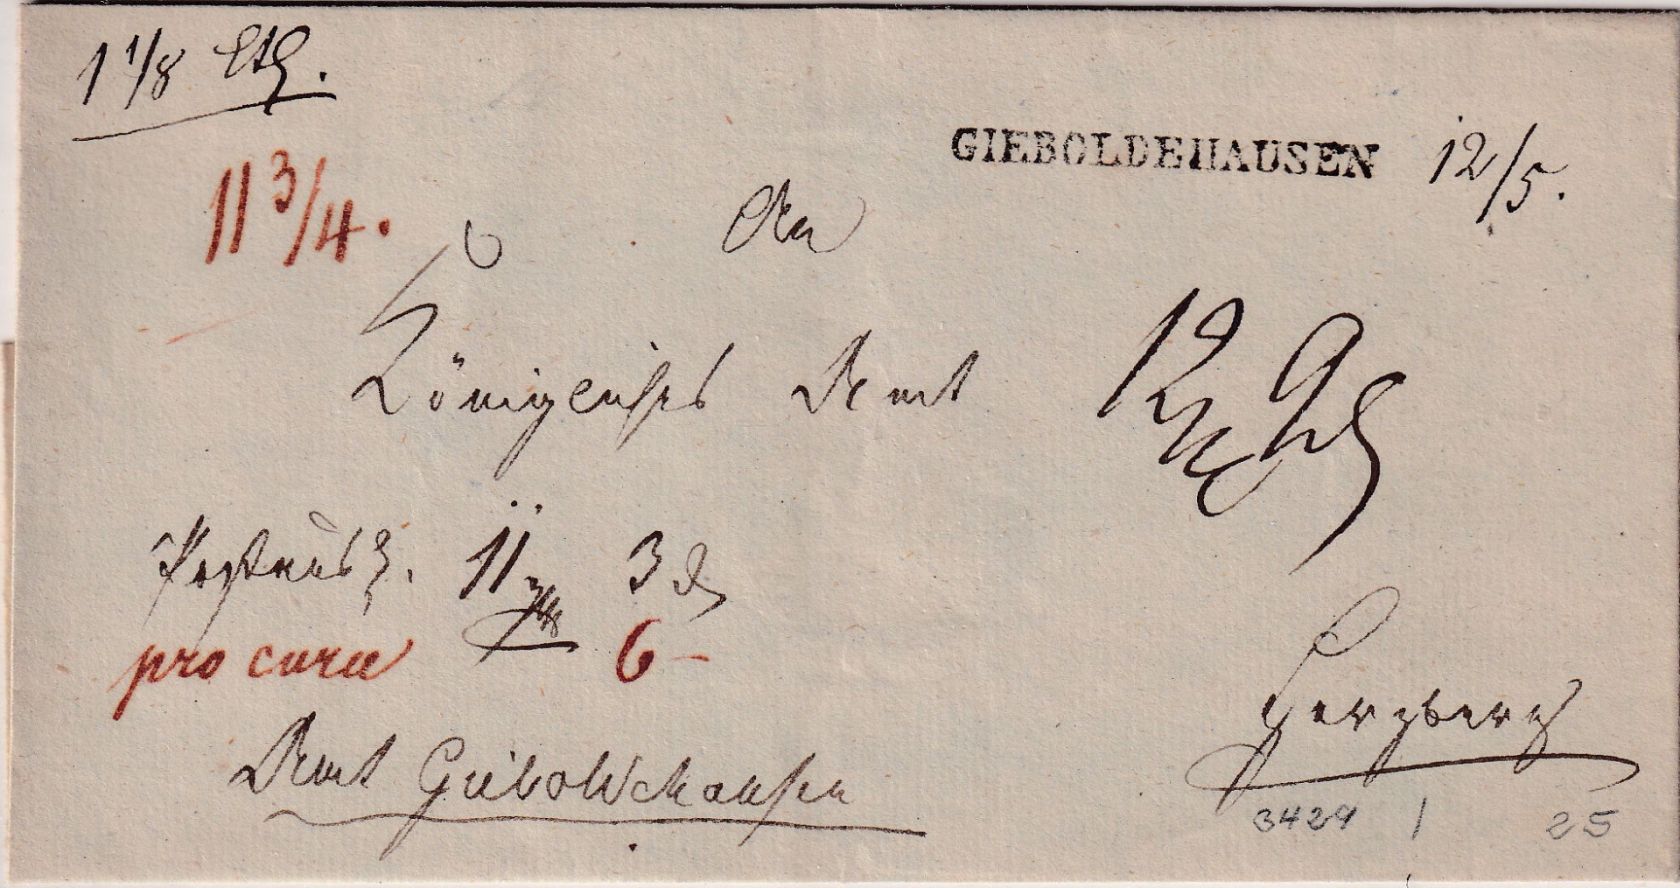 1 1/8 Lth.
GIEBOLDEHAUSEN 12/5.
11 3/4.
An
Königliches Amt
11 3 d
pro cura 6
Herzberg
Amt Gieboldehausen
3429 | 25